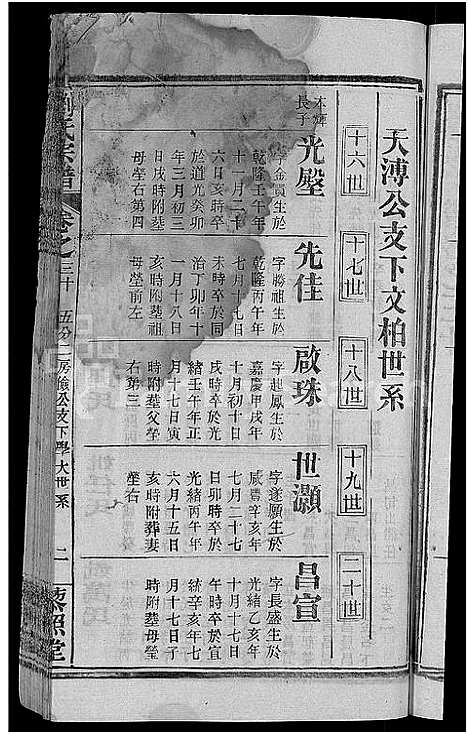 天溥公支下文柏世系
十六世
十七世
十八世
十九世
二十世
本
長子
光壂
字金賢生於
乾隆壬午年
十一月二十
六日亥時卒
於道光癸卯
年三月初三
日戌時附墓
母塋右第四
先佳
字勝祖生於
乾隆丙午年
七月十九日
未時卒於同
治丁卯年十
一月十八日
亥時附墓祖
母塋前左
啟珠
字起鳳生於
嘉慶甲戌年
十月初十日
戌時卒於光
緒壬午年正
月十七日寅
時附墓父塋
右第三
世灝
字遂願生於
咸豐辛亥年
七月二十七
日卯時卒於
光緒丙午年
六月十五日
亥時附葬妻
塋右
昌宣
字長盛生於
光緒乙亥年
十月十七日
午時卒於宣
統辛亥年七
月十七日子
時附墓母塋
氏宗譜
卷之三十
五分二房儉公支下學大世系
二
藜照堂